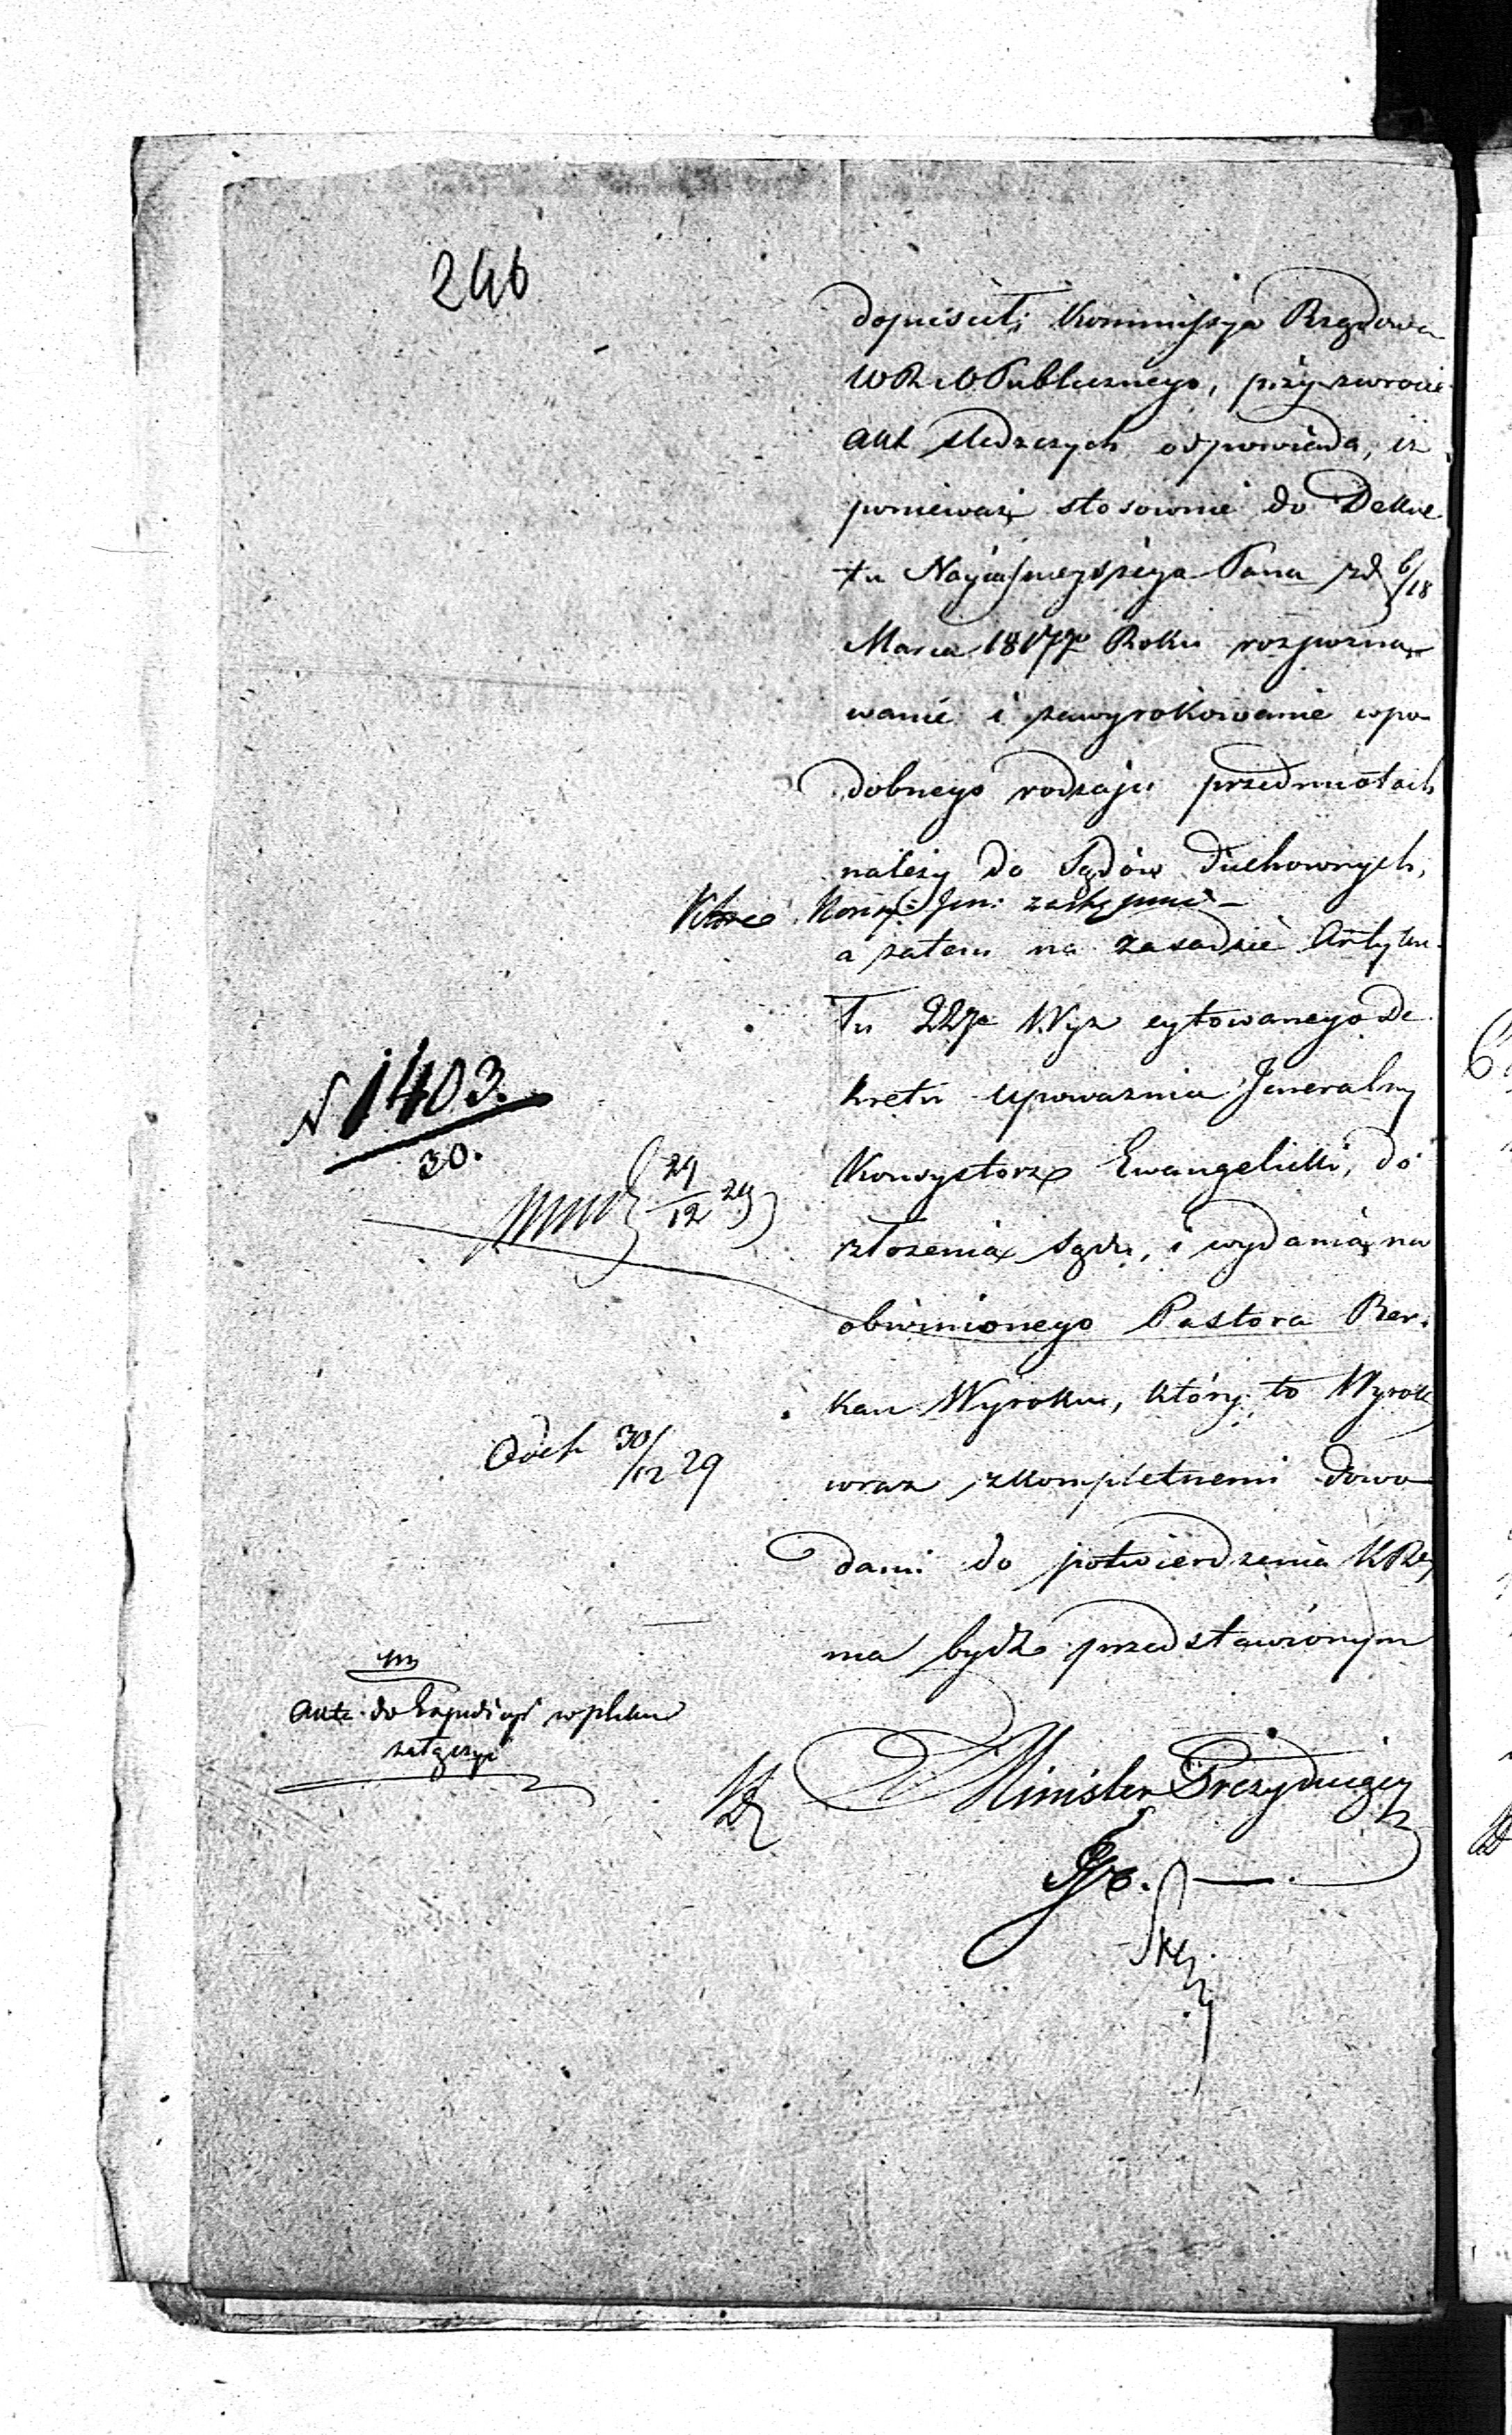 246
dopuścił; Kommissya Rządowa
WR i OPublicznego, przy zwrocie
akt śledczych odpowiada, iż
ponieważ stosownie do Dekre
tu Nayiaśnieyszego Pana z d 6/18
Marca 1817go Roku rozpozna
wanie i zawyrokowanie w po
dobnego rodzaju przedmiotach
należy do Sądów Duchownych,
które Konsy: Jen: zastępuie –
a zatem na zasadzie Artyku
łu 22go Wyż cytowanego De
kretu upoważnia Jeneralny
Konsystorz Ewangelicki, do
złożenia sądu, i wydania na
obwinionego Pastora Ber
kau Wyroku, który to Wyrok
wraz z kompletnemi dowo
dami do potwierdzenia KRz
ma bydź przedstawionym
Minister Prezyduiący
N 1403.
30.
29/12 29
Odeb 30/12 29
Akta do Expedicyi w pliku
załączyć